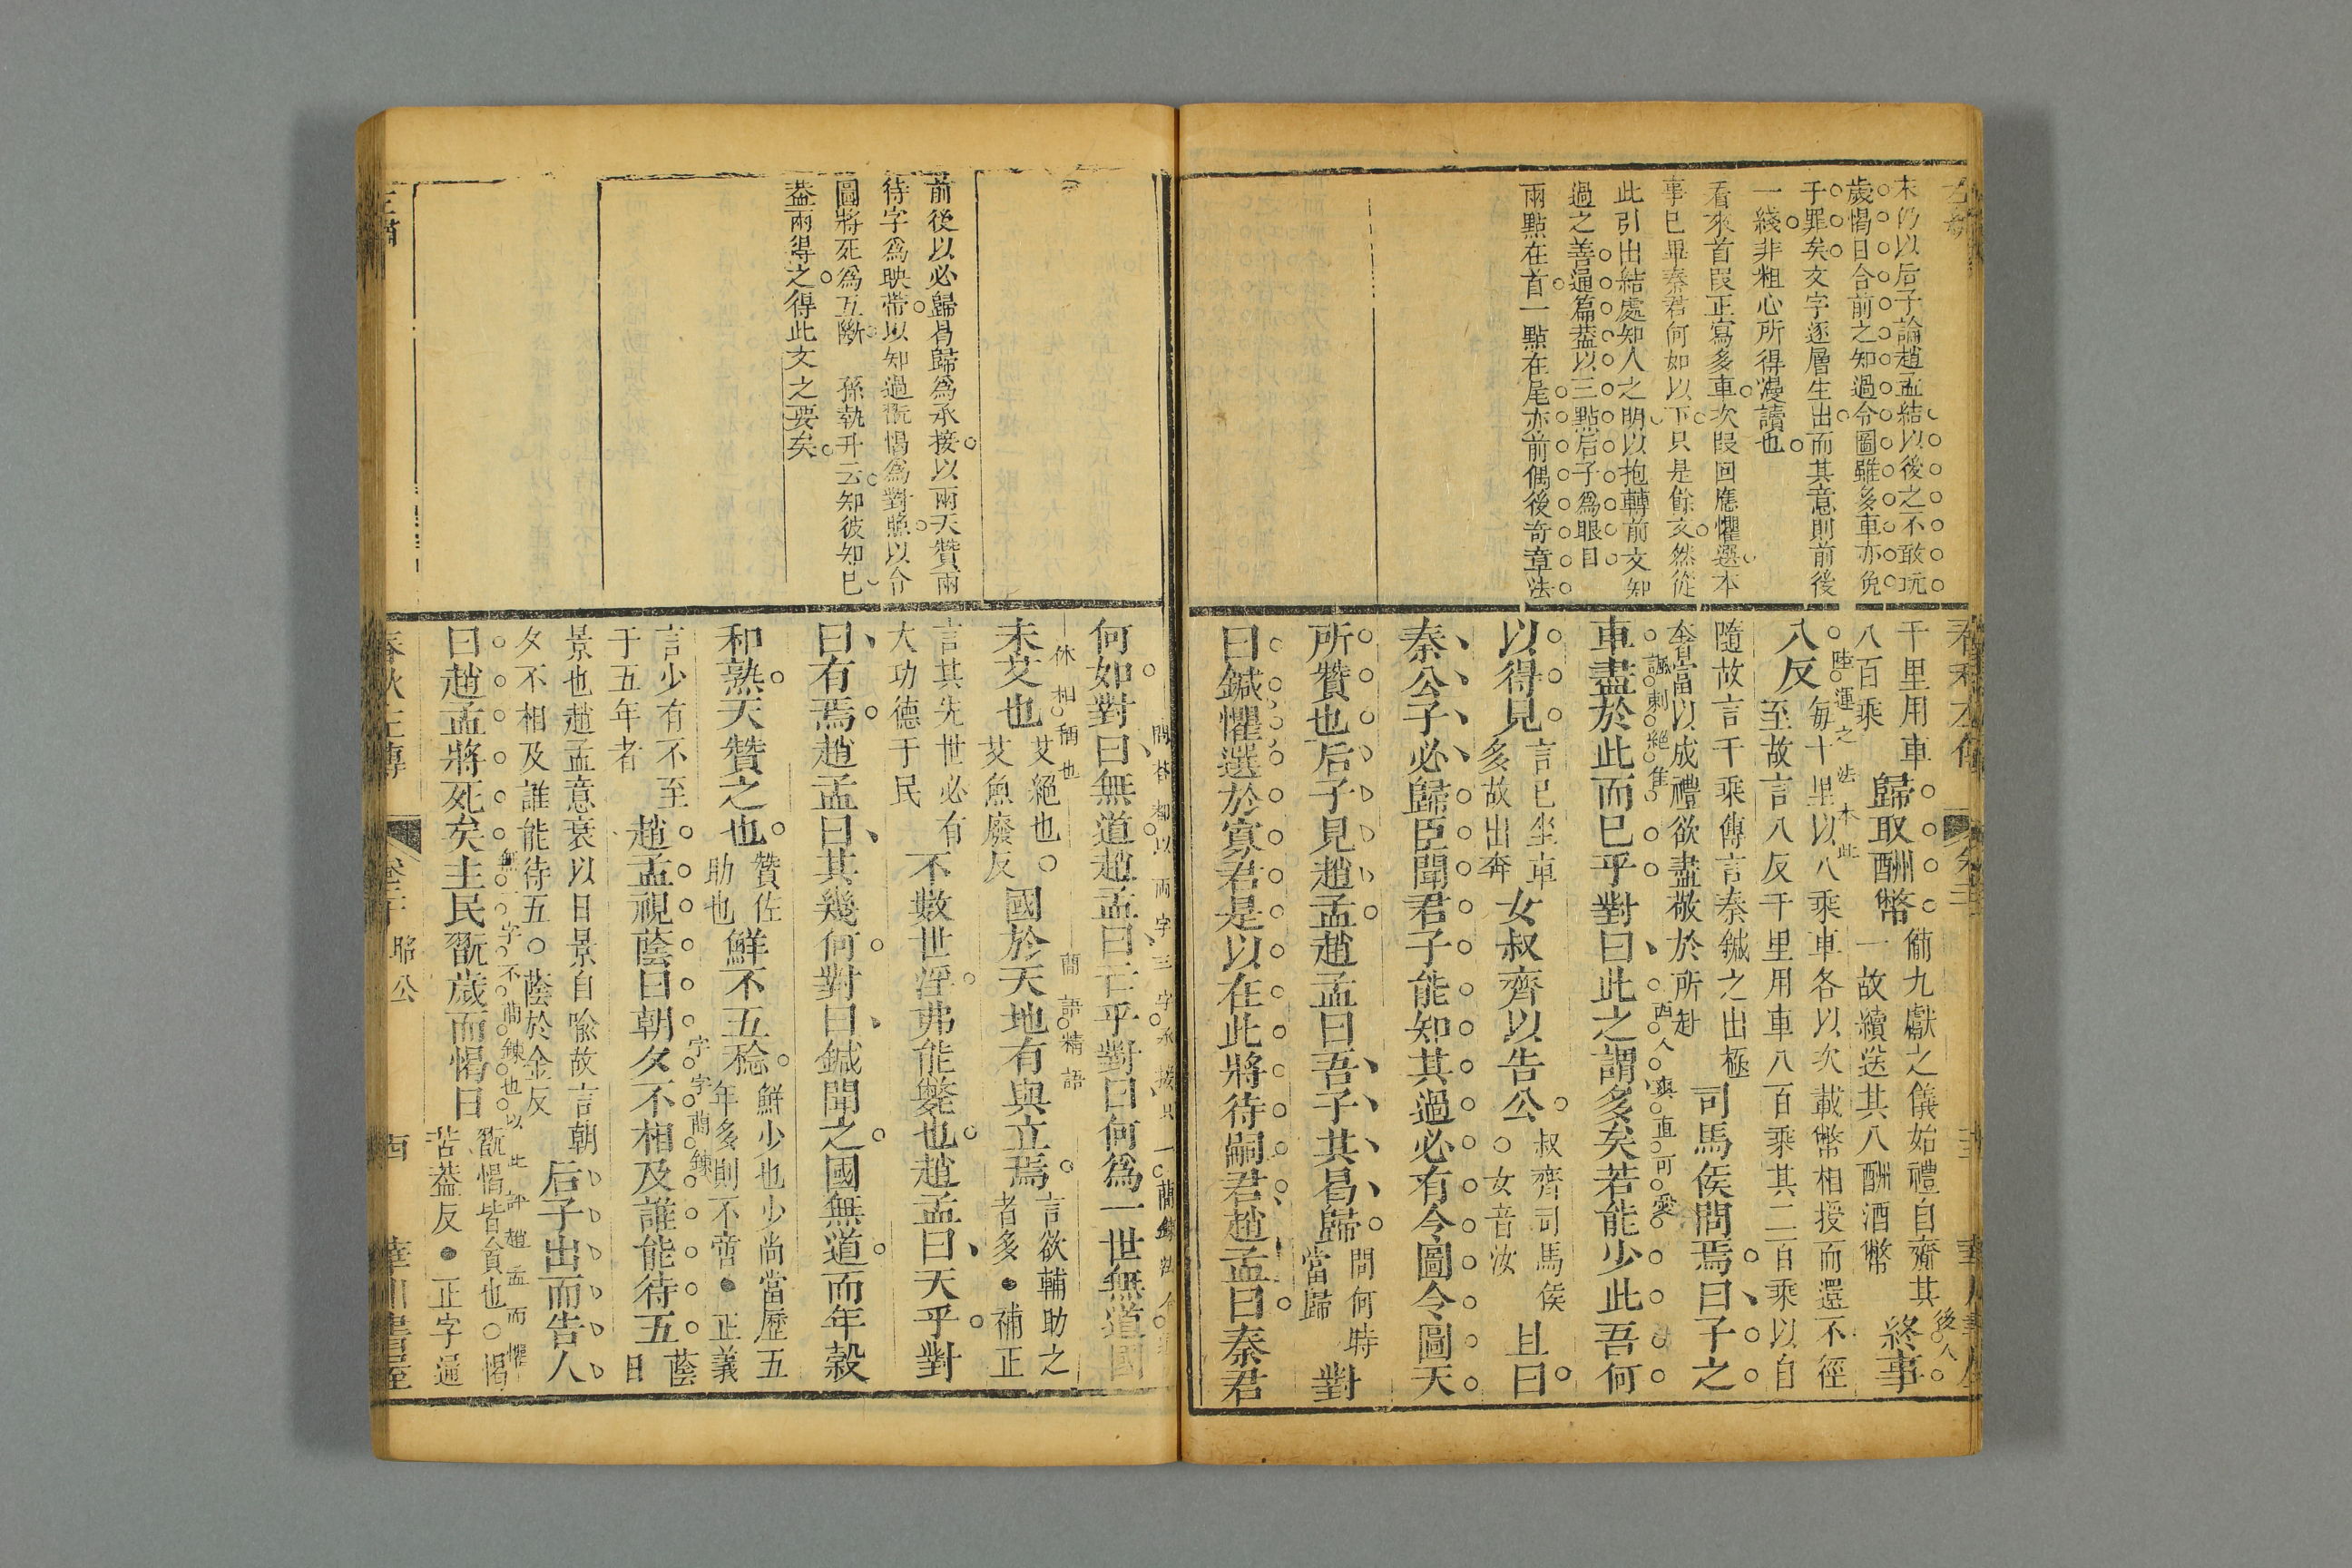 末仍以后子論趙孟結以後之不敢玩
歲愒日合前之知過令圖雖多車亦免
于罪矣文字逐層生出而其意則前後
一綫非粗心所得漫讀也
看來首段正寫多車次段回應懼選本
事已畢秦君何如以下只是餘文然從
此引出結處知人之明以抱轉前文知
過之善通篇葢以三點后子為眼目
兩點在首一點在尾亦前偶後奇章法
千里用車
八百乘
歸取酬幣
備九獻之儀始禮自齎其
一故續送其八酬酒幣
終事
八反
每十里以八乘車各以次載幣相授而還不徑
至故言八反千里用車八百乘其二百乘以自
隨故言千乘傳言秦鍼之出極
奢富以成禮欲盡敬於所赴
司馬侯問焉曰子之
車盡於此而已乎對曰此之謂多矣若能少此吾何
以得見
言已坐車
多故出奔
女叔齊以告公
叔齊司馬侯
○女音汝
且曰
秦公子必歸臣聞君子能知其過必有令圖令圖天
所贊也后子見趙孟趙孟曰吾子其曷歸
問何時
當歸
對
曰鍼懼選於寡君是以在此將待嗣君趙孟曰秦君
陸運之法本此
諷刺絕佳
西人爽直可愛
前後以必歸曷歸為承接以兩天贊兩
待字為映帶以知過翫愒為對照以令
圖將死為互斷 孫執升云知彼知已
葢兩得之得此文之要矣
何如對曰無道趙孟曰亡乎對曰何為一世無道國
未艾也
艾絕也○
艾魚廢反
國於天地有與立焉
言欲輔助之
者多●補正
言其先世必有
大功德于民
不數世淫弗能斃也趙孟曰天乎對
曰有焉趙孟曰其幾何對曰鍼聞之國無道而年穀
和熟天贊之也
贊佐
助也
鮮不五稔
鮮少也少尚當歷五
年多則不啻●正義
言少有不至
于五年者
趙孟視蔭曰朝夕不相及誰能待五
蔭
日
景也趙孟意衰以日景自喻故言朝
夕不相及誰能待五○蔭於金反
后子出而告人
曰趙孟將死矣主民翫歲而愒日
翫愒皆貪也○愒
苦葢反●正字通
休相稱也
簡語精語
字字簡鍊
無一字不簡鍊也以此評趙孟而懼
昭公